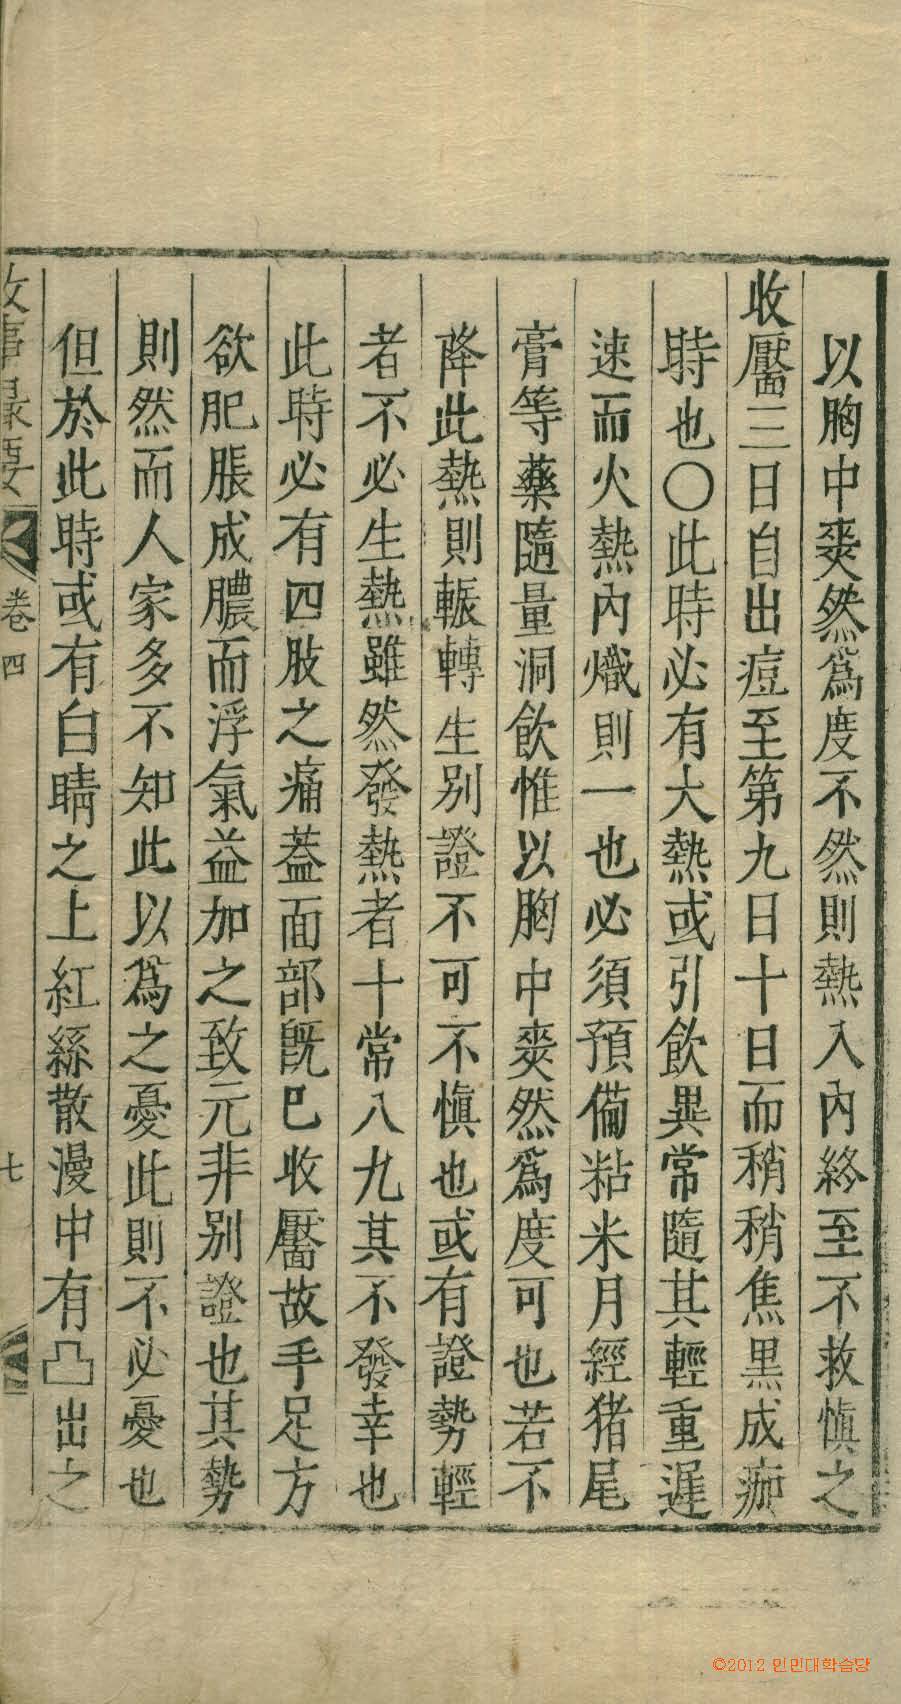 以胸中爽然爲度不然則熱入內終至不救愼之
收靨三日自出痘至第九日十日而稍稍焦黑成痂
時也〇此時必有大熱或引飮異常隨其輕重遲
速而火熱內熾則一也必須預備粘米月經猪尾
膏等藥隨量洞飮惟以胸中爽然爲度可也若不
降此熱則輾轉生別證不可不愼也或有證勢輕
者不必生熱雖然發熱者十常八九其不發幸也
此時必有四肢之痛蓋面部旣已收靨故手足方
欲肥脹成膿而浮氣益加之致元非別證也其勢
則然而人家多不知此以爲之憂此則不必憂也
但於此時或有白睛之上紅絲散漫中有凸出之
攷事撮要 卷四 七
©2012 인민대학습당